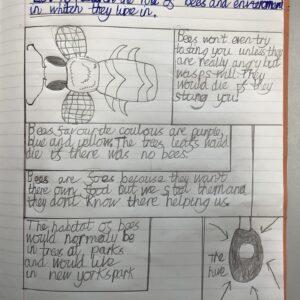 the role of bees and environment
in whitch they live in.
Bees won't even try
to sting you unless they
are really angry but
wasps will. They
would die if they
stung you!
Bees favourite coulious are purple,
blue and yellow. The trees leafs would
die if there was no bees.
Bees are foes because they want
there own food but we steel them and
they dont know there helping us.
The habitat of bees
would normaley be
in tres at parks
and would live
in new yorks park
The
hive